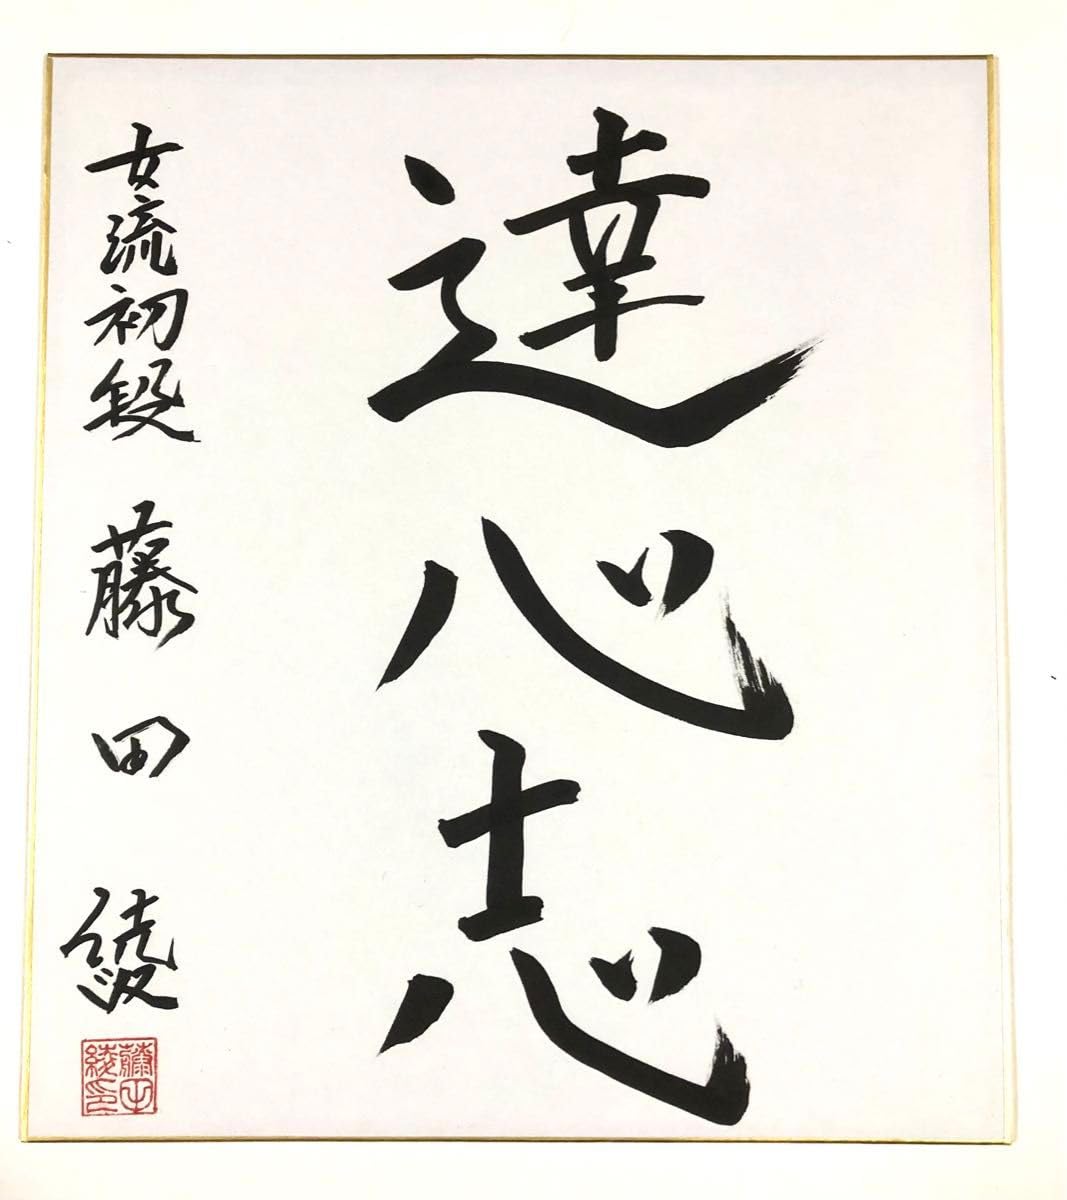 達心志
女流初段 藤田 綾
藤田
綾印